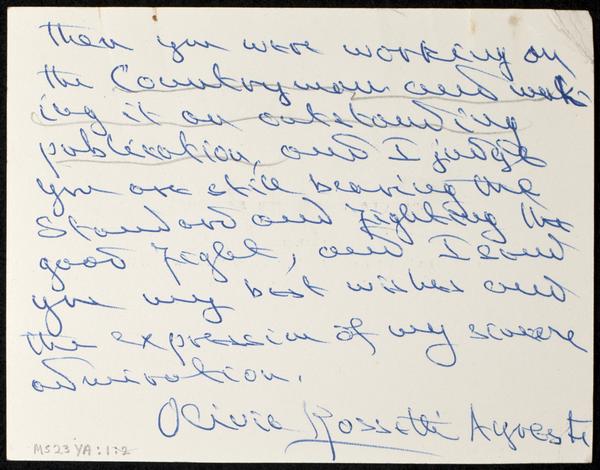 then you were working on
the Countryman and mak-
ing it an outstanding
publication, and I judge
you are still bearing the
standard and fighting the
good fight, and I send
you my best wishes and
the expression of my sincere
admiration.
Olivia Rossetti Agresti
MS23 YA:1:2